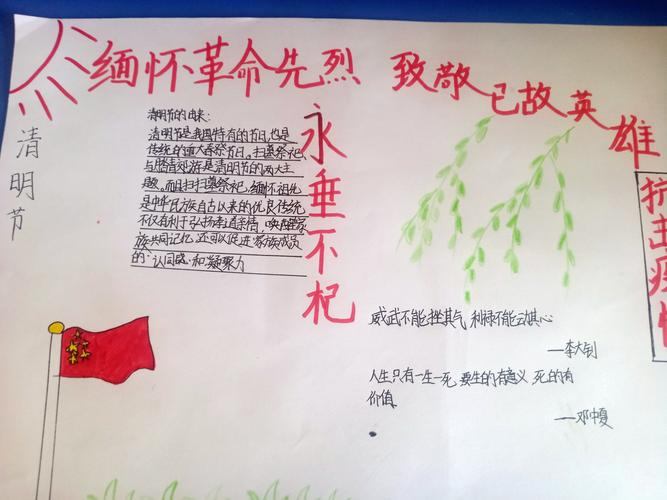 缅怀革命先烈 致敬已故英雄
清明节
清明节的由来:
清明节是我国特有的节日,也是
传统的重大春祭节日。扫墓祭祀、
与踏青郊游是清明节的两大主
题。而且扫墓祭祀,缅怀祖先
是中华民族自古以来的优良传统
不仅有利于弘扬孝道亲情、唤醒家
族共同记忆,还可以促进家族成员
的·认同感·和凝聚力
永垂不杞
威武不能挫其气,利禄不能动其心
—李大钊
人生只有一生一死,要生的有意义,死的有
价值.
—邓中夏
抗击疫情